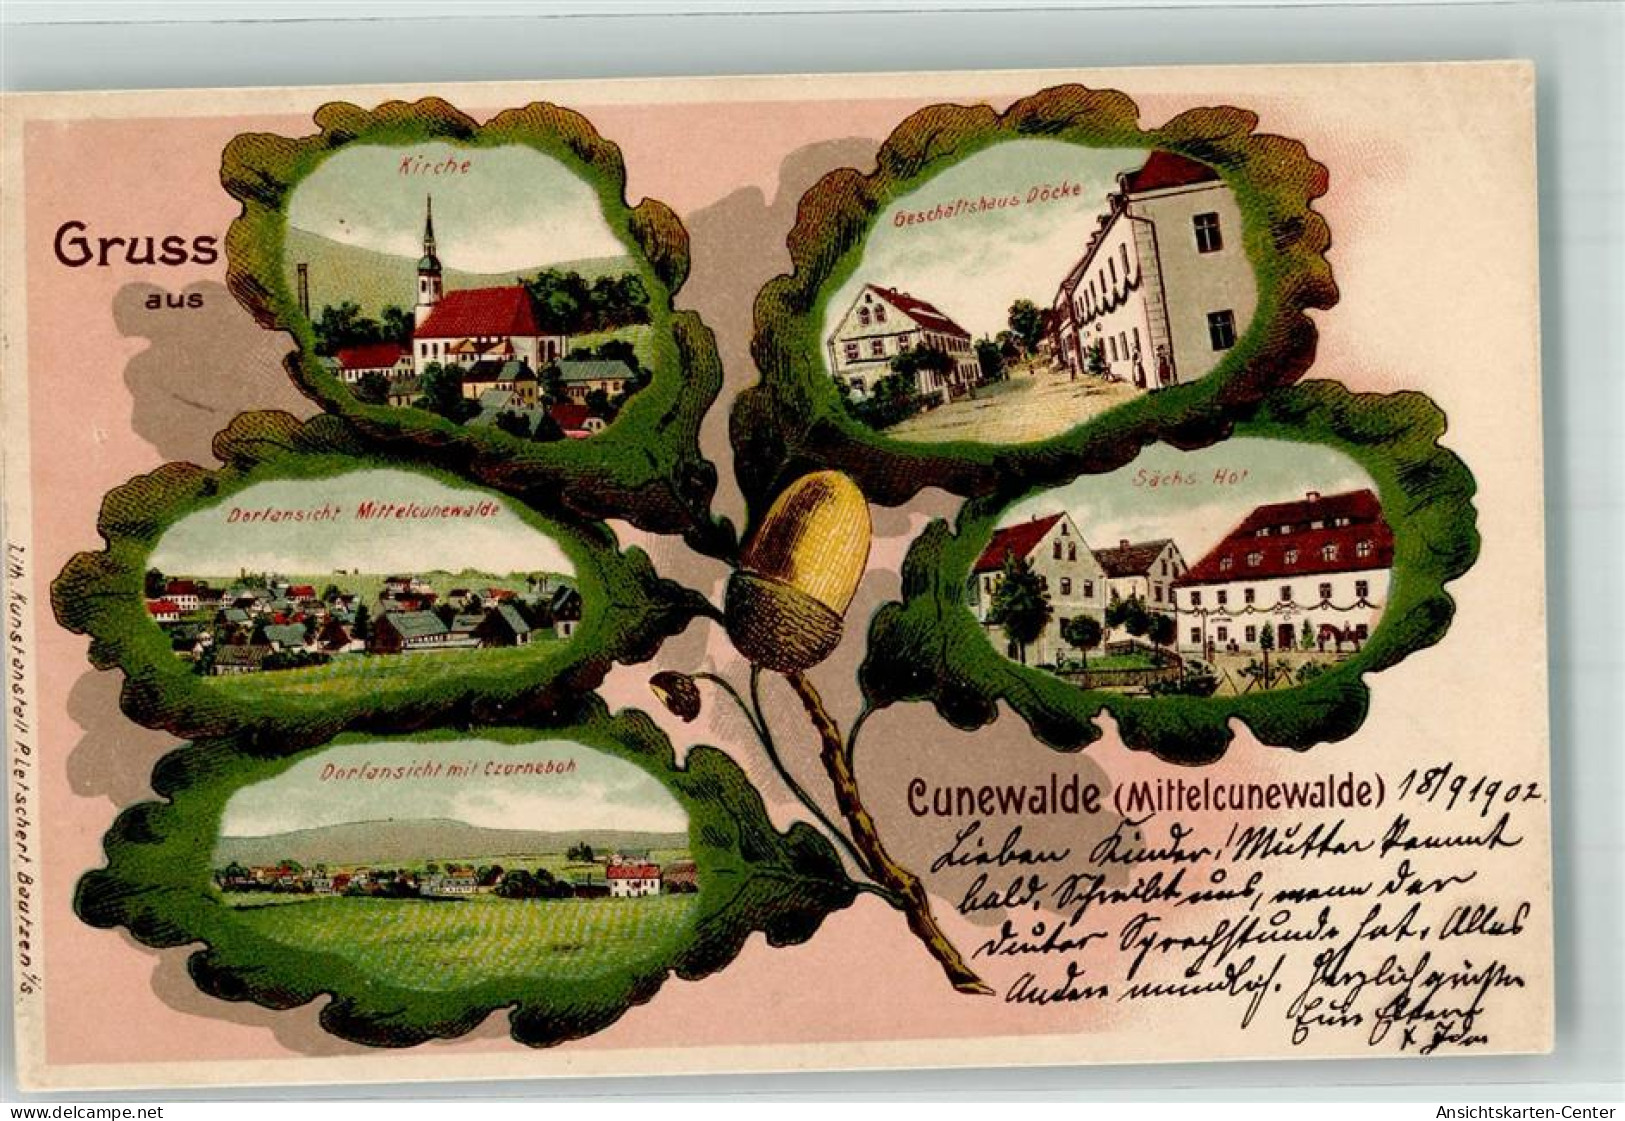 Gruss
aus
Kirche
Geschäftshaus Döcke
Dorfansicht Mittelcunewalde
Sächs. Hof
Dorfansicht mit Czorneboh
Cunewalde (Mittelcunewalde) 18/9 1902.
Lieben Kinder! Mutter kommt
bald. Schreibt uns, wenn der
Sprechstunde hat. Alles
Andere mündlich. Herzlich grüßen
Eure Eltern
Lith. Kunstanstalt P. Letschert Bautzen i/S.
www.delcampe.net
Ansichtskarten-Center